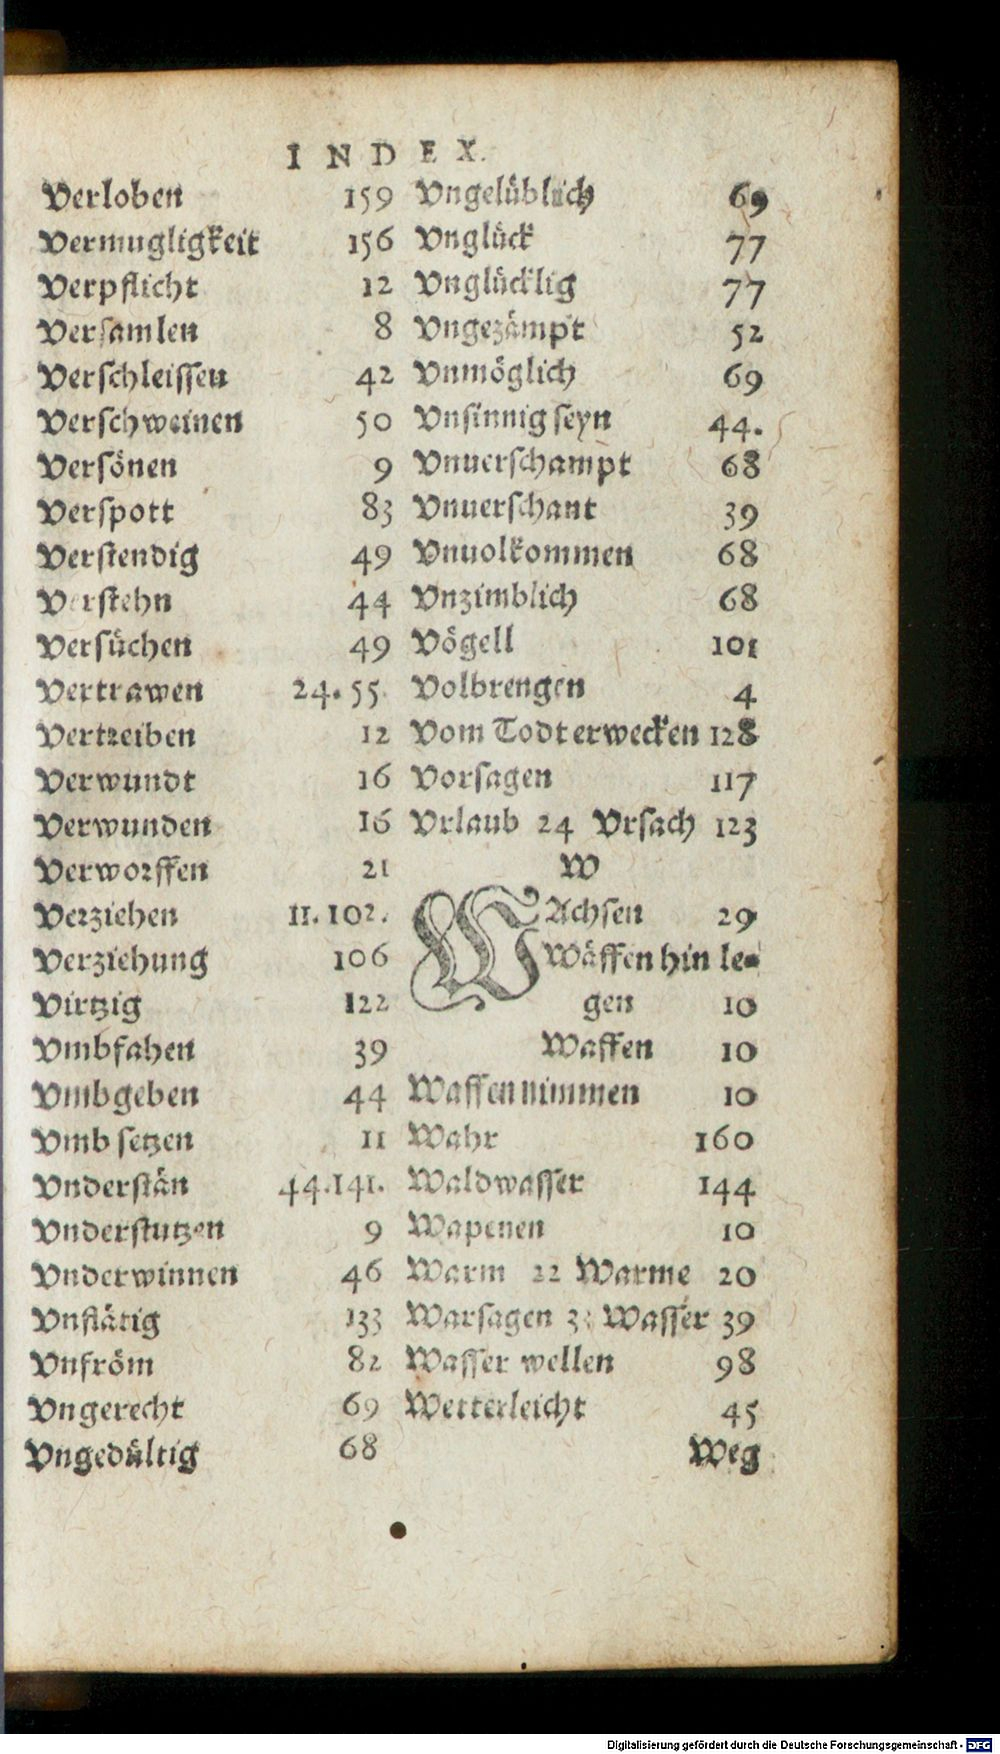 INDEX.
Verloben 159
Vermugligkeit 156
Verpflicht 12
Versamlen 8
Verschleissen 42
Verschweinen 50
Versönen 9
Verspott 83
Verstendig 49
Verstehn 44
Versüchen 49
Vertrawen 24. 55
Vertreiben 12
Verwundt 16
Verwunden 16
Verworffen 21
Verziehen 11. 102.
Verziehung 106
Virtzig 122
Vmbfahen 39
Vmbgeben 44
Vmb setzen 11
Vnderstän 44.141.
Vnderstutzen 9
Vnderwinnen 46
Vnflätig 133
Vnfröm 82
Vngerecht 69
Vngedültig 68
Vngelüblich 69
Vnglück 77
Vnglücklig 77
Vngezämpt 52
Vnmöglich 69
Vnsinnig seyn 44.
Vnuerschampt 68
Vnuerschant 39
Vnuolkommen 68
Vnzimblich 68
Vögell 101
Volbrengen 4
Vom Todt erwecken 128
Vorsagen 117
Vrlaub 24 Vrsach 123
W
WAchsen 29
Wäffen hin le-
gen 10
Waffen 10
Waffen nimmen 10
Wahr 160
Waldwasser 144
Wapenen 10
Warm 22 Warme 20
Warsagen Wasser 39
Wasser wellen 98
Wetterleicht 45
Weg
Digitalisierung gefördert durch die Deutsche Forschungsgemeinschaft - DFG